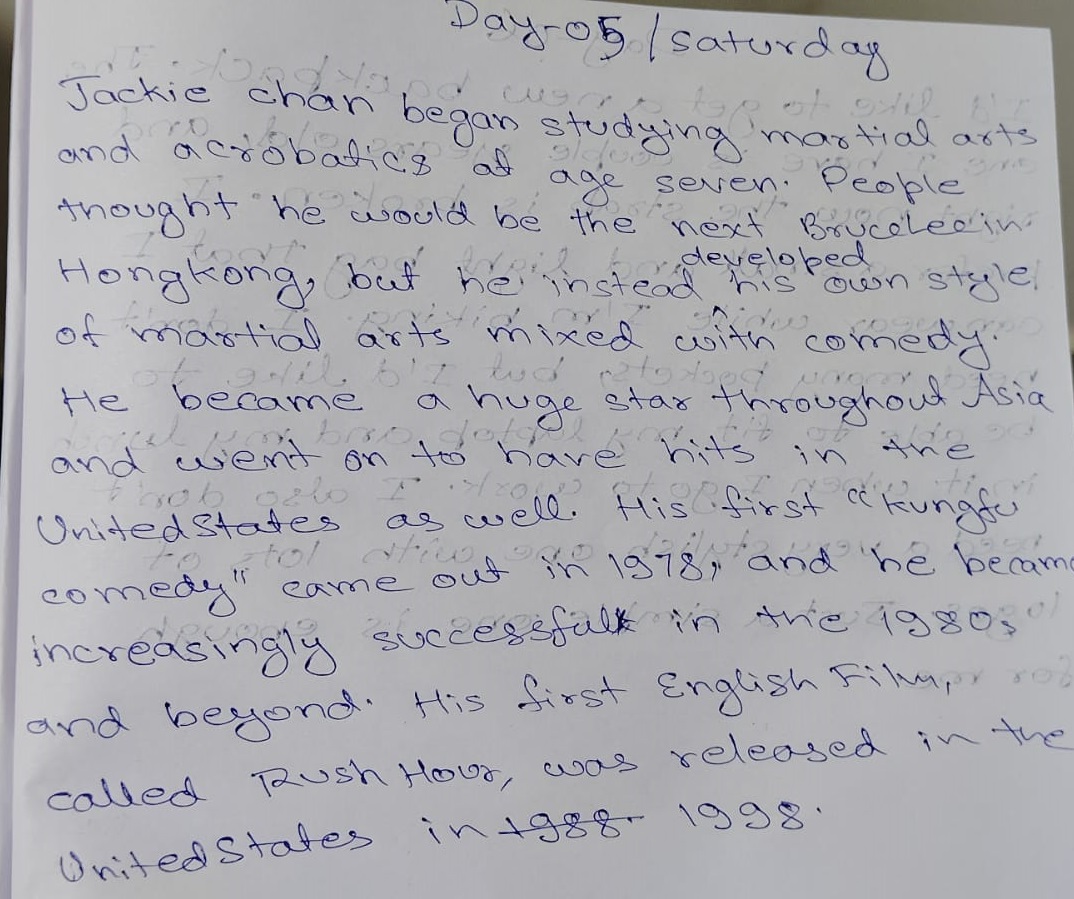 Day-05 / saturday
Jackie chan began studying martial arts
and acrobatics at age seven. People
thought he would be the next BruceLee in
developed
Hongkong, but he instead his own style
of martial arts mixed with comedy.
He became a huge star throughout Asia
and went on to have hits in the
UnitedStates as well. His first "kungfu
comedy" came out in 1978, and he became
increasingly successful in the 1980s
and beyond. His first English Film,
called Rush Hour, was released in the
UnitedStates in 1988 1998.